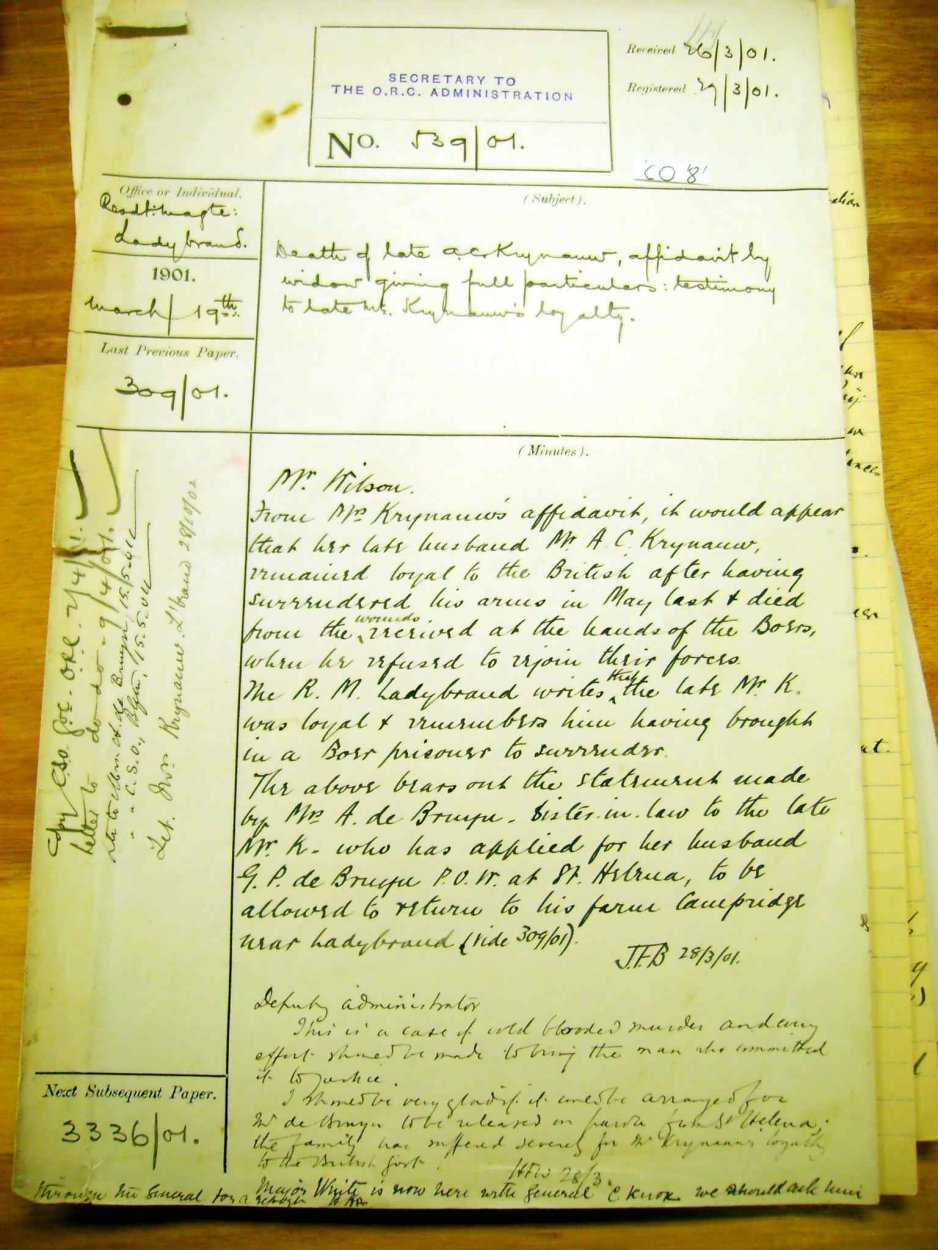 Received 26/3/01.
Registered 29/3/01.
SECRETARY TO
THE O.R.C. ADMINISTRATION
No. 539/01.
CO '8'
Office or Individual.
Resdt: Magte:
Ladybrand.
1901.
March/19th
Last Previous Paper.
309/01.
(Subject).
Death of late A.C. Krynauw, affidavit by
widow giving full particulars: testimony
to late Mr. Krynauw's loyalty.
(Minutes).
Mr. Wilson.
From Mrs Krynauw's affidavit, it would appear
that her late husband Mr A. C. Krynauw,
remained loyal to the British after having
surrendered his arms in May last & died
from the wounds received at the hands of the Boers,
when he refused to rejoin their forces.
The R. M. Ladybrand writes that the late Mr K.
was loyal & remembers him having brought
in a Boer prisoner to surrender.
The above bears out the statement made
by Mrs A. de Bruyn - Sister-in-law to the late
Mr K - who has applied for her husband
G. P. de Bruyn P.O.W. at St. Helena, to be
allowed to return to his farm Campridge
near Ladybrand (vide 309/01).
J.F.B 28/3/01.
Deputy Administrator
This is a case of cold blooded murder and every
effort should be made to bring the man who committed
it to justice.
I should be very glad if it could be arranged for
Mr de Bruyn to be released on parole from St Helena;
the family has suffered severely for Mr Krynauw's loyalty
to the British Govt.
HFW 28/3.
Major White is now here with General C Knox we should ask him
through the General for a report
Copy C.S.O. G.O.C. - O.R.C. 2/4/01.
Letter to do - do - 9/4/01.
Mrs A. de Bruyn, 15/5/01
" " C.S.O., Bfn, 15.5.01
Let. Mrs Krynauw L'brand 28/10/02
Next Subsequent Paper.
3336/01.